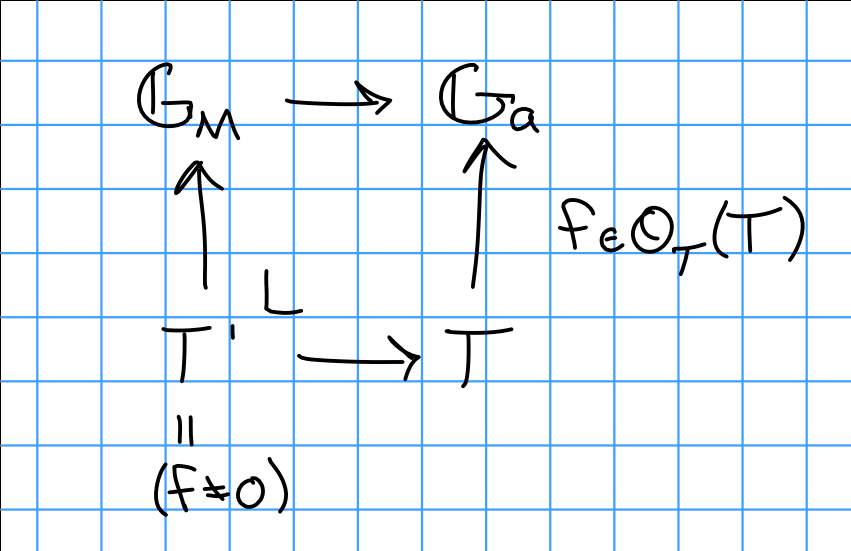 𝔾_M → 𝔾_a
↑ ↑ f ∈ 𝒪_T(T)
T' → T
||
(f ≠ 0)